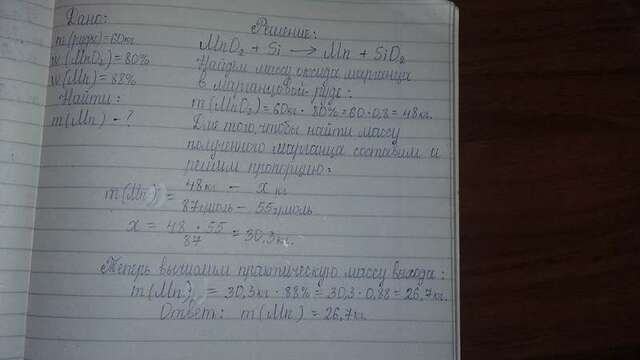 Дано:
m(руды)=60кг
w(MnO2)=80%
w(Mn)=88%
Найти:
m(Mn)-?
Решение:
MnO2 + Si → Mn + SiO2
Найдём массу оксида марганца
в марганцовой руде:
m(MnO2)=60кг · 80%=60·0,8=48кг.
Для того, чтобы найти массу
полученного марганца составим и
решим пропорцию:
48кг - x кг
m(Mn)=
87г/моль - 55г/моль
x = 48 · 55 = 30,3кг.
87
Теперь вычислим практическую массу выхода:
m(Mn) = 30,3кг · 88% = 30,3 · 0,88 = 26,7кг.
Ответ: m(Mn) = 26,7кг.